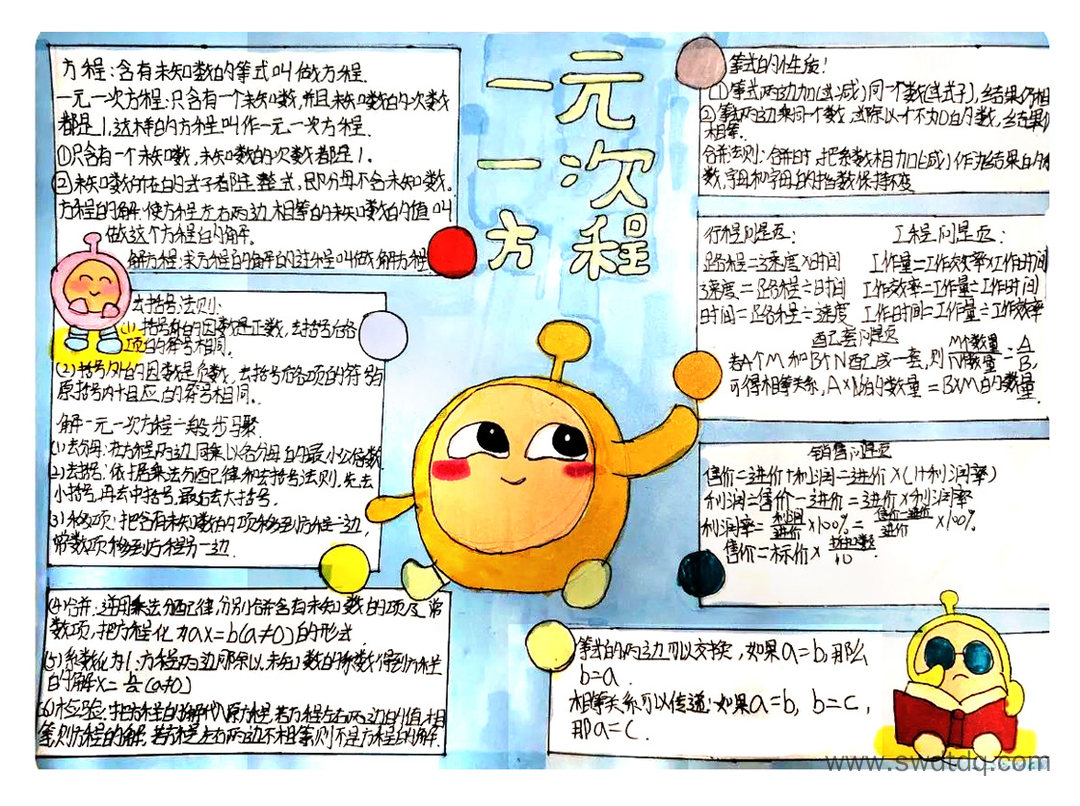 一元
一次
方程
方程：含有未知数的等式叫做方程.
一元一次方程：只含有一个未知数，并且未知数的次数
都是1，这样的方程叫作一元一次方程.
①只含有一个未知数，未知数的次数都是1.
②未知数所在的式子都是整式，即分母不含未知数。
方程的解：使方程左右两边相等的未知数的值叫
做这个方程的解。
解方程：求方程的解的过程叫做解方程
去括号法则：
(1)括号外的因数是正数，去括号后各
项的符号相同.
(2)括号外的因数是负数，去括号后各项的符号与
原括号内相应的符号相同。
解一元一次方程一般步骤
(1)去分母：在方程两边同乘以各分母的最小公倍数
(2)去括：依据乘法分配律和去括号法则，先去
小括号，再去中括号，最后去大括号.
(3)移项：把含有未知数的项移到方程一边，
常数项移到方程另一边.
(4)合并：逆用乘法分配律，分别合并含有未知数的项及常
数项，把方程化为ax=b(a≠0)的形式.
(5)系数化为1：方程两边都除以未知数的系数得到方程
的解x= (a≠0)
(6)检验：把方程的解代入原方程，若方程左右两边的值相
等则方程的解，若方程左右两边不相等则不是方程的解.
等式的性质：
①等式两边加(或减)同一个数(或式子)，结果仍相
②等式两边乘同一个数，或除以一个不为0的数，结果仍
相等.
合并法则：合并时，把系数相加(或减)作为结果的系
数，字母和字母的指数保持不变
行程问题： 工程问题：
路程=速度×时间 工作量=工作效率×工作时间
速度=路程÷时间 工作效率=工作量÷工作时间
时间=路程÷速度 工作时间=工作量÷工作效率
配套问题
若A个M和B个N配成一套，则M个数量/N个数量=A/B，
可得相等关系，A×N的数量=B×M的数量.
销售问题
售价=进价+利润=进价×(1+利润率)
利润=售价-进价=进价×利润率
利润率=利润/进价×100%=售价-进价/进价×100%
售价=标价×折扣数/10
等式的两边可以交换，如果a=b，那么
b=a.
相等关系可以传递：如果a=b，b=c，
那a=c.
www.swdtdq.com